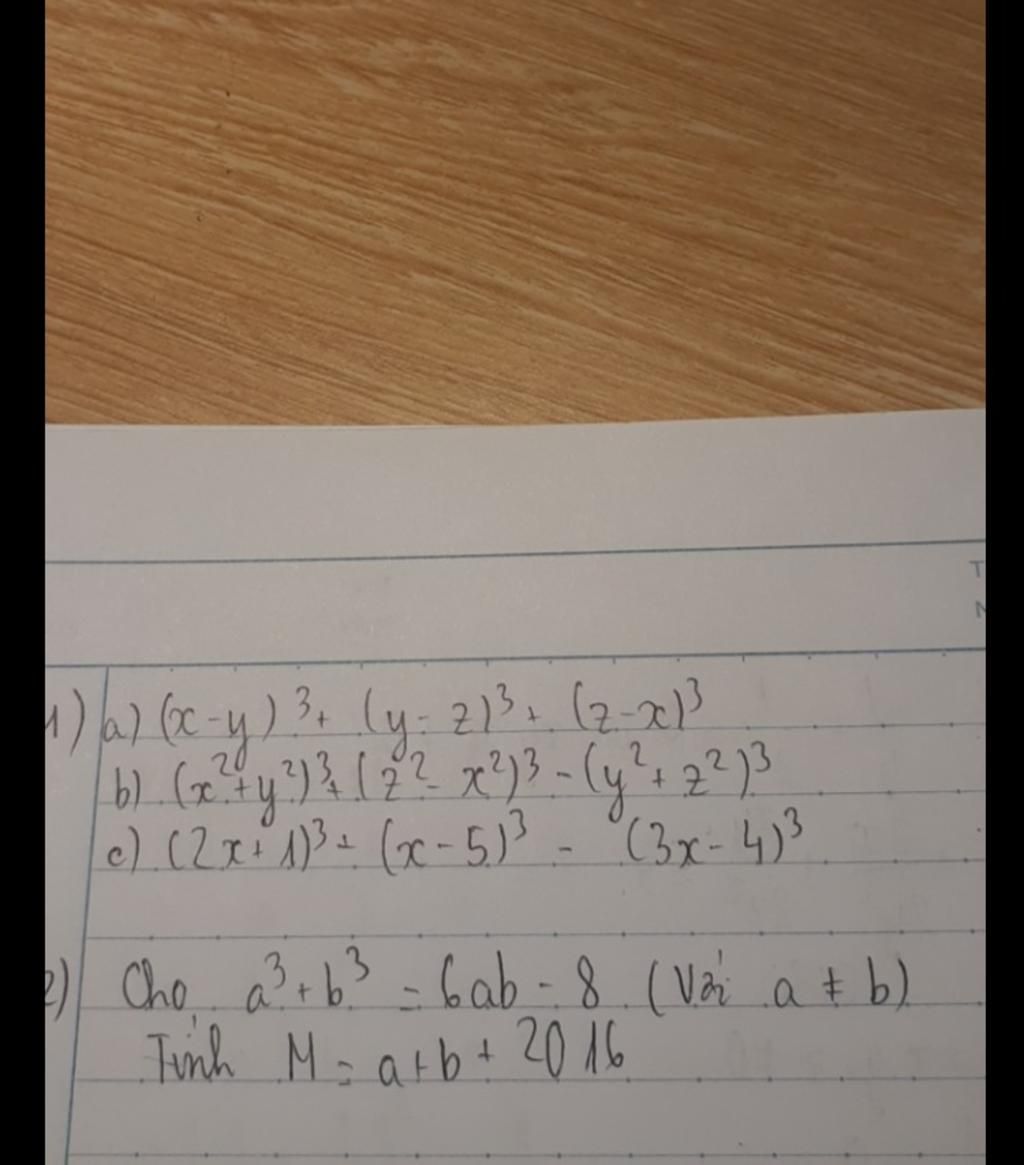 1) a) (x-y)³ + (y-z)³ + (z-x)³
b) (x²+y²)³ + (z²-x²)³ - (y²+z²)³
c) (2x+1)³ + (x-5)³ - (3x-4)³
2) Cho a³+b³ = 6ab - 8 (Với a ≠ b)
Tính M = a+b+2016